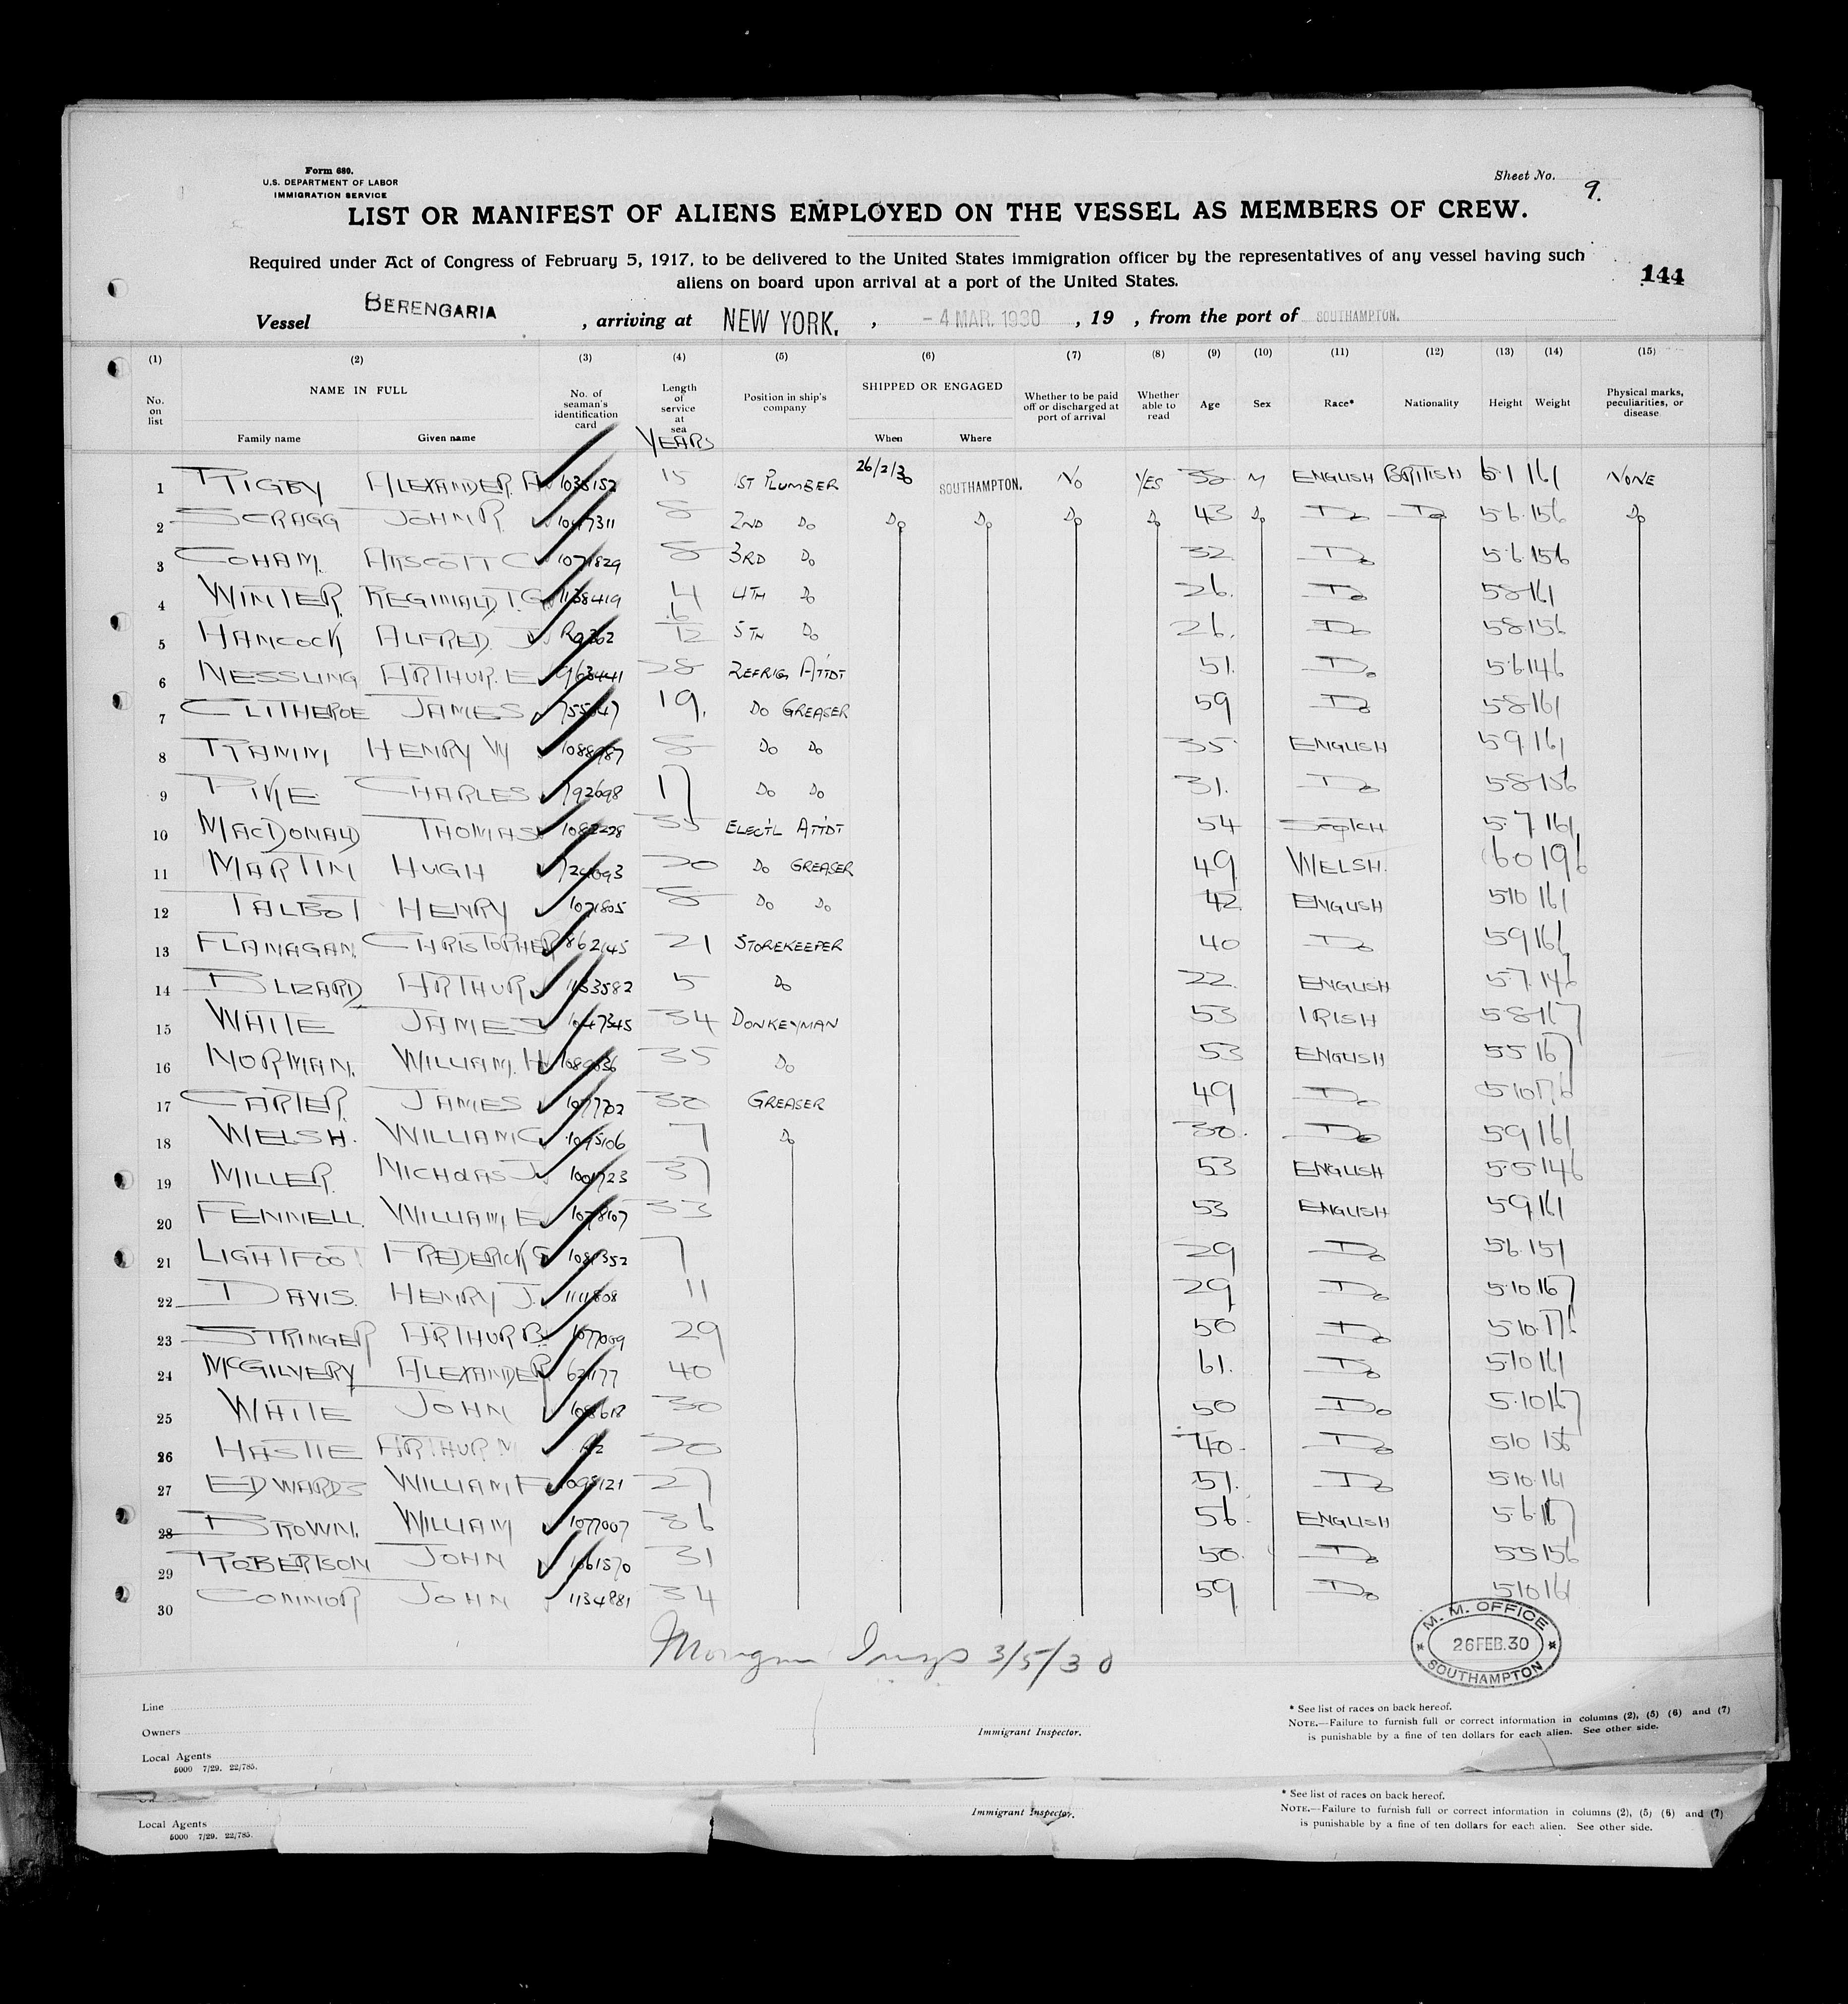 Form 680.
U.S. DEPARTMENT OF LABOR
IMMIGRATION SERVICE
Sheet No. 9.
LIST OR MANIFEST OF ALIENS EMPLOYED ON THE VESSEL AS MEMBERS OF CREW.
Required under Act of Congress of February 5, 1917, to be delivered to the United States immigration officer by the representatives of any vessel having such
aliens on board upon arrival at a port of the United States.
144
Vessel BERENGARIA, arriving at NEW YORK., -4 MAR. 1930, 19 , from the port of SOUTHAMPTON.
(1) (2) (3) (4) (5) (6) (7) (8) (9) (10) (11) (12) (13) (14) (15)
No. on list NAME IN FULL Family name Given name No. of seaman's identification card Length of service at sea YEARS Position in ship's company SHIPPED OR ENGAGED When Where Whether to be paid off or discharged at port of arrival Whether able to read Age Sex Race* Nationality Height Weight Physical marks, peculiarities, or disease
1 RIGBY ALEXANDER. A 1035152 15 1ST PLUMBER 26/2/30 SOUTHAMPTON. NO YES M ENGLISH BRITISH 161 NONE
2 SCRAGG JOHN R. 1047311 8 2ND Do Do Do Do Do 43 Do Do Do 5.6. 156 Do
3 COHAM. ARSCOTT C 1071829 8 3RD Do 32 Do 5.6. 156
4 WINTER. REGINALD T.G. 1138419 4 4TH Do 26. Do 5 8 161
5 HANCOCK ALFRED. J 6/12 5TH Do 26. Do 5 8 156
6 NESSLING ARTHUR. E 963441 28 REFRIG ATTDT 51. Do 5.6 146
7 CLITHEROE JAMES 19. Do GREASER 59 Do 5 8 161
8 RAMM HENRY W 8 Do Do 35 ENGLISH 5 9 161
9 PIKE CHARLES 792698 17 Do Do 31. Do 5 8 156
10 MACDONALD THOMAS 1082228 35 ELECT'L ATTDT 54 SCOTCH 5.7 161
11 MARTIN HUGH 20 Do GREASER 49 WELSH. 6 0 196
12 TALBOT HENRY 1071805 8 Do Do 42 ENGLISH 5 10 161
13 FLANAGAN. CHRISTOPHER 862145 21 STOREKEEPER 40 Do 5 9 161
14 BLIZARD ARTHUR. 1133582 5 Do 22. ENGLISH 5.7. 146
15 WHITE JAMES 1047345 34 DONKEYMAN 53 IRISH 5 8 167
16 NORMAN. WILLIAM. H 1089636 35 Do 53 ENGLISH 5 5 167
17 CARTER. JAMES 1077702 30 GREASER 49 Do 5 10 176
18 WELSH. WILLIAM C 1095106 7 Do 30. Do 5 9 161
19 MILLER. NICHOLAS J 1001723 37 53 ENGLISH 5.5 146
20 FENNELL. WILLIAM. E 1078107 33 53 ENGLISH 5 9 161
21 LIGHTFOOT FREDERICK G 1081352 7 29 Do 5 6. 151
22 DAVIS. HENRY J. 1111808 11 29 Do 5.10. 167
23 STRINGER ARTHUR B. 1077009 29 50 Do 5 10. 176
24 MCGILVERY ALEXANDER 621177 40 61. Do 5 10 161
25 WHITE JOHN 30 50 Do 5.10 167
26 HASTIE ARTHUR M 20 40. Do 5 10 156
27 EDWARDS WILLIAM F 1098121 27 51. Do 5 10. 161
28 BROWN. WILLIAM 1077007 36 56. ENGLISH 5.6. 167
29 ROBERTSON JOHN 1061570 31 50. Do 5 5 156
30 CONNOR JOHN 1134881 34 59 Do 5 10 161
3/5/30
M. M. OFFICE
26 FEB. 30
SOUTHAMPTON
Line
Owners
Local Agents
5000 7/29. 22/785.
Immigrant Inspector.
* See list of races on back hereof.
NOTE.—Failure to furnish full or correct information in columns (2), (5) (6) and (7)
is punishable by a fine of ten dollars for each alien. See other side.
Local Agents
5000 7/29. 22/785.
Immigrant Inspector.
* See list of races on back hereof.
NOTE.—Failure to furnish full or correct information in columns (2), (5) (6) and (7)
is punishable by a fine of ten dollars for each alien. See other side.